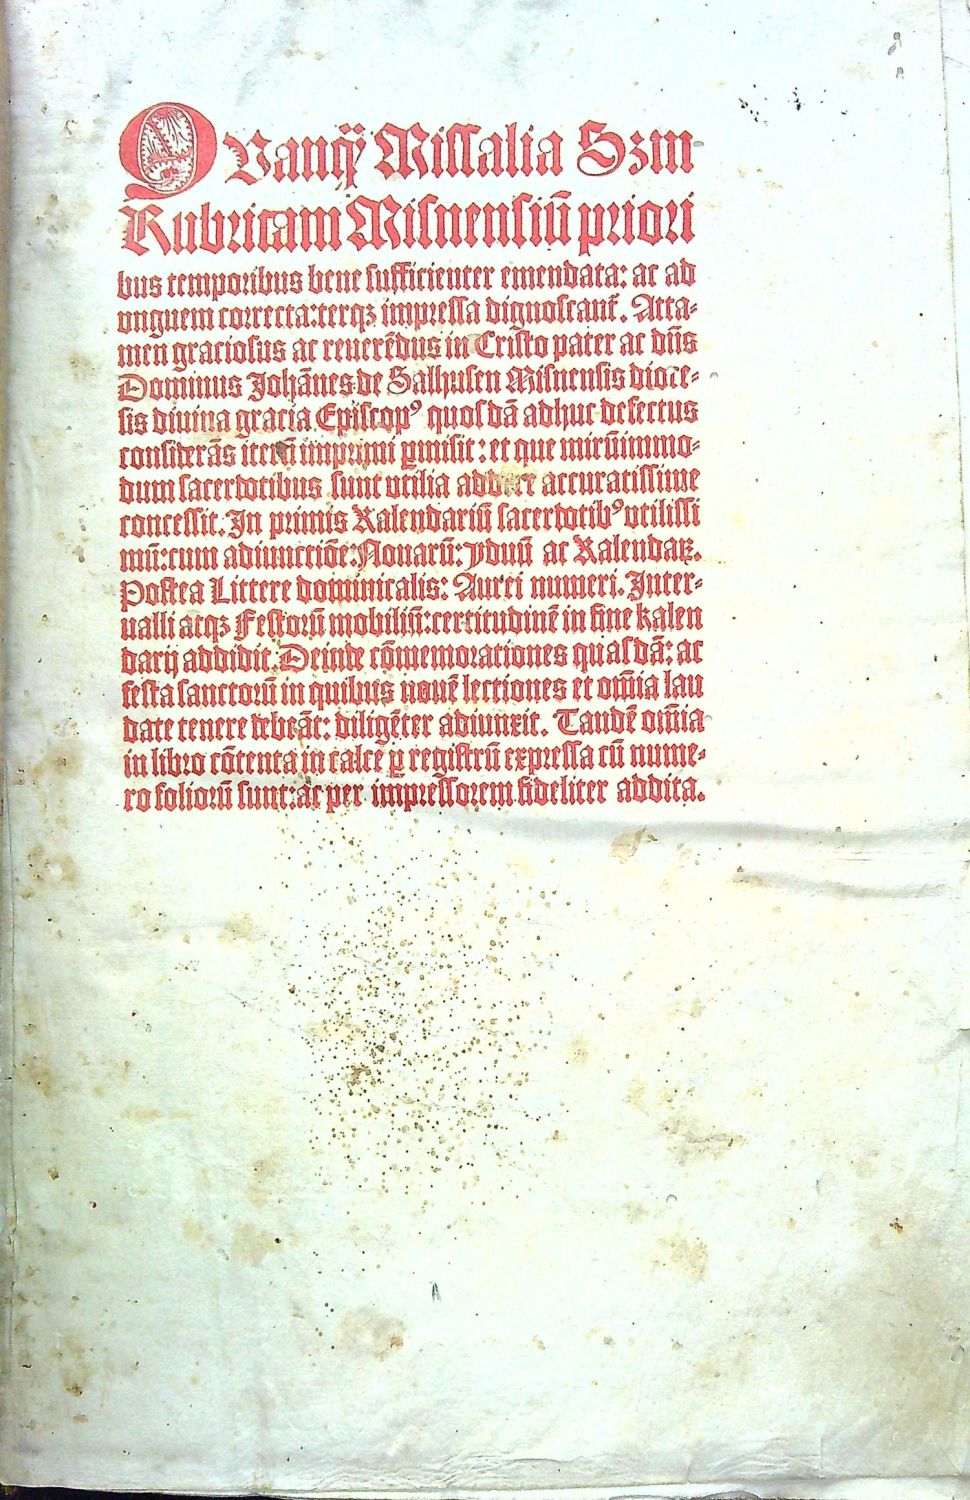 QVanq̃ Missalia Szm
Rubricam Misnensiũ priori
bus temporibus bene sufficienter emendata: ac ad
vnguem correcta: terqꝫ impressa dignoscant᷑. Atta⸗
men graciosus ac reuerẽdus in Cristo pater ac dñs
Dominus Johãnes de Salhusen Misnensis dioce⸗
sis diuina gracia Ep̃iscopꝰ quosdã adhuc defectus
considerãs iterũ imprimi ꝑmisit: et que mirũimmo⸗
dum sacerdotibus sunt vtilia addere accuratissime
concessit. In primis Kalendariũ sacerdotibꝰ vtilissi
mũ: cum adiunctiõe: Nonarũ: ydnũ ac Kalendaꝝ.
Postea Littere dominicalis: Aurei numeri. Inter⸗
ualli atqꝫ Festorũ mobiliũ: certitudinẽ in fine kalen
darij addidit. Deinde cõmemorationes quasdã: ac
festa sanctorũ in quibus nouẽ lectiones et om̃ia lau
date tenere debeãt: diligẽter adiunxit. Tandẽ om̃ia
in libro cõtenta in calcẽ ꝑ registrũ expressa cũ nume⸗
ro foliorũ sunt: ac per impressorem fideliter addita.